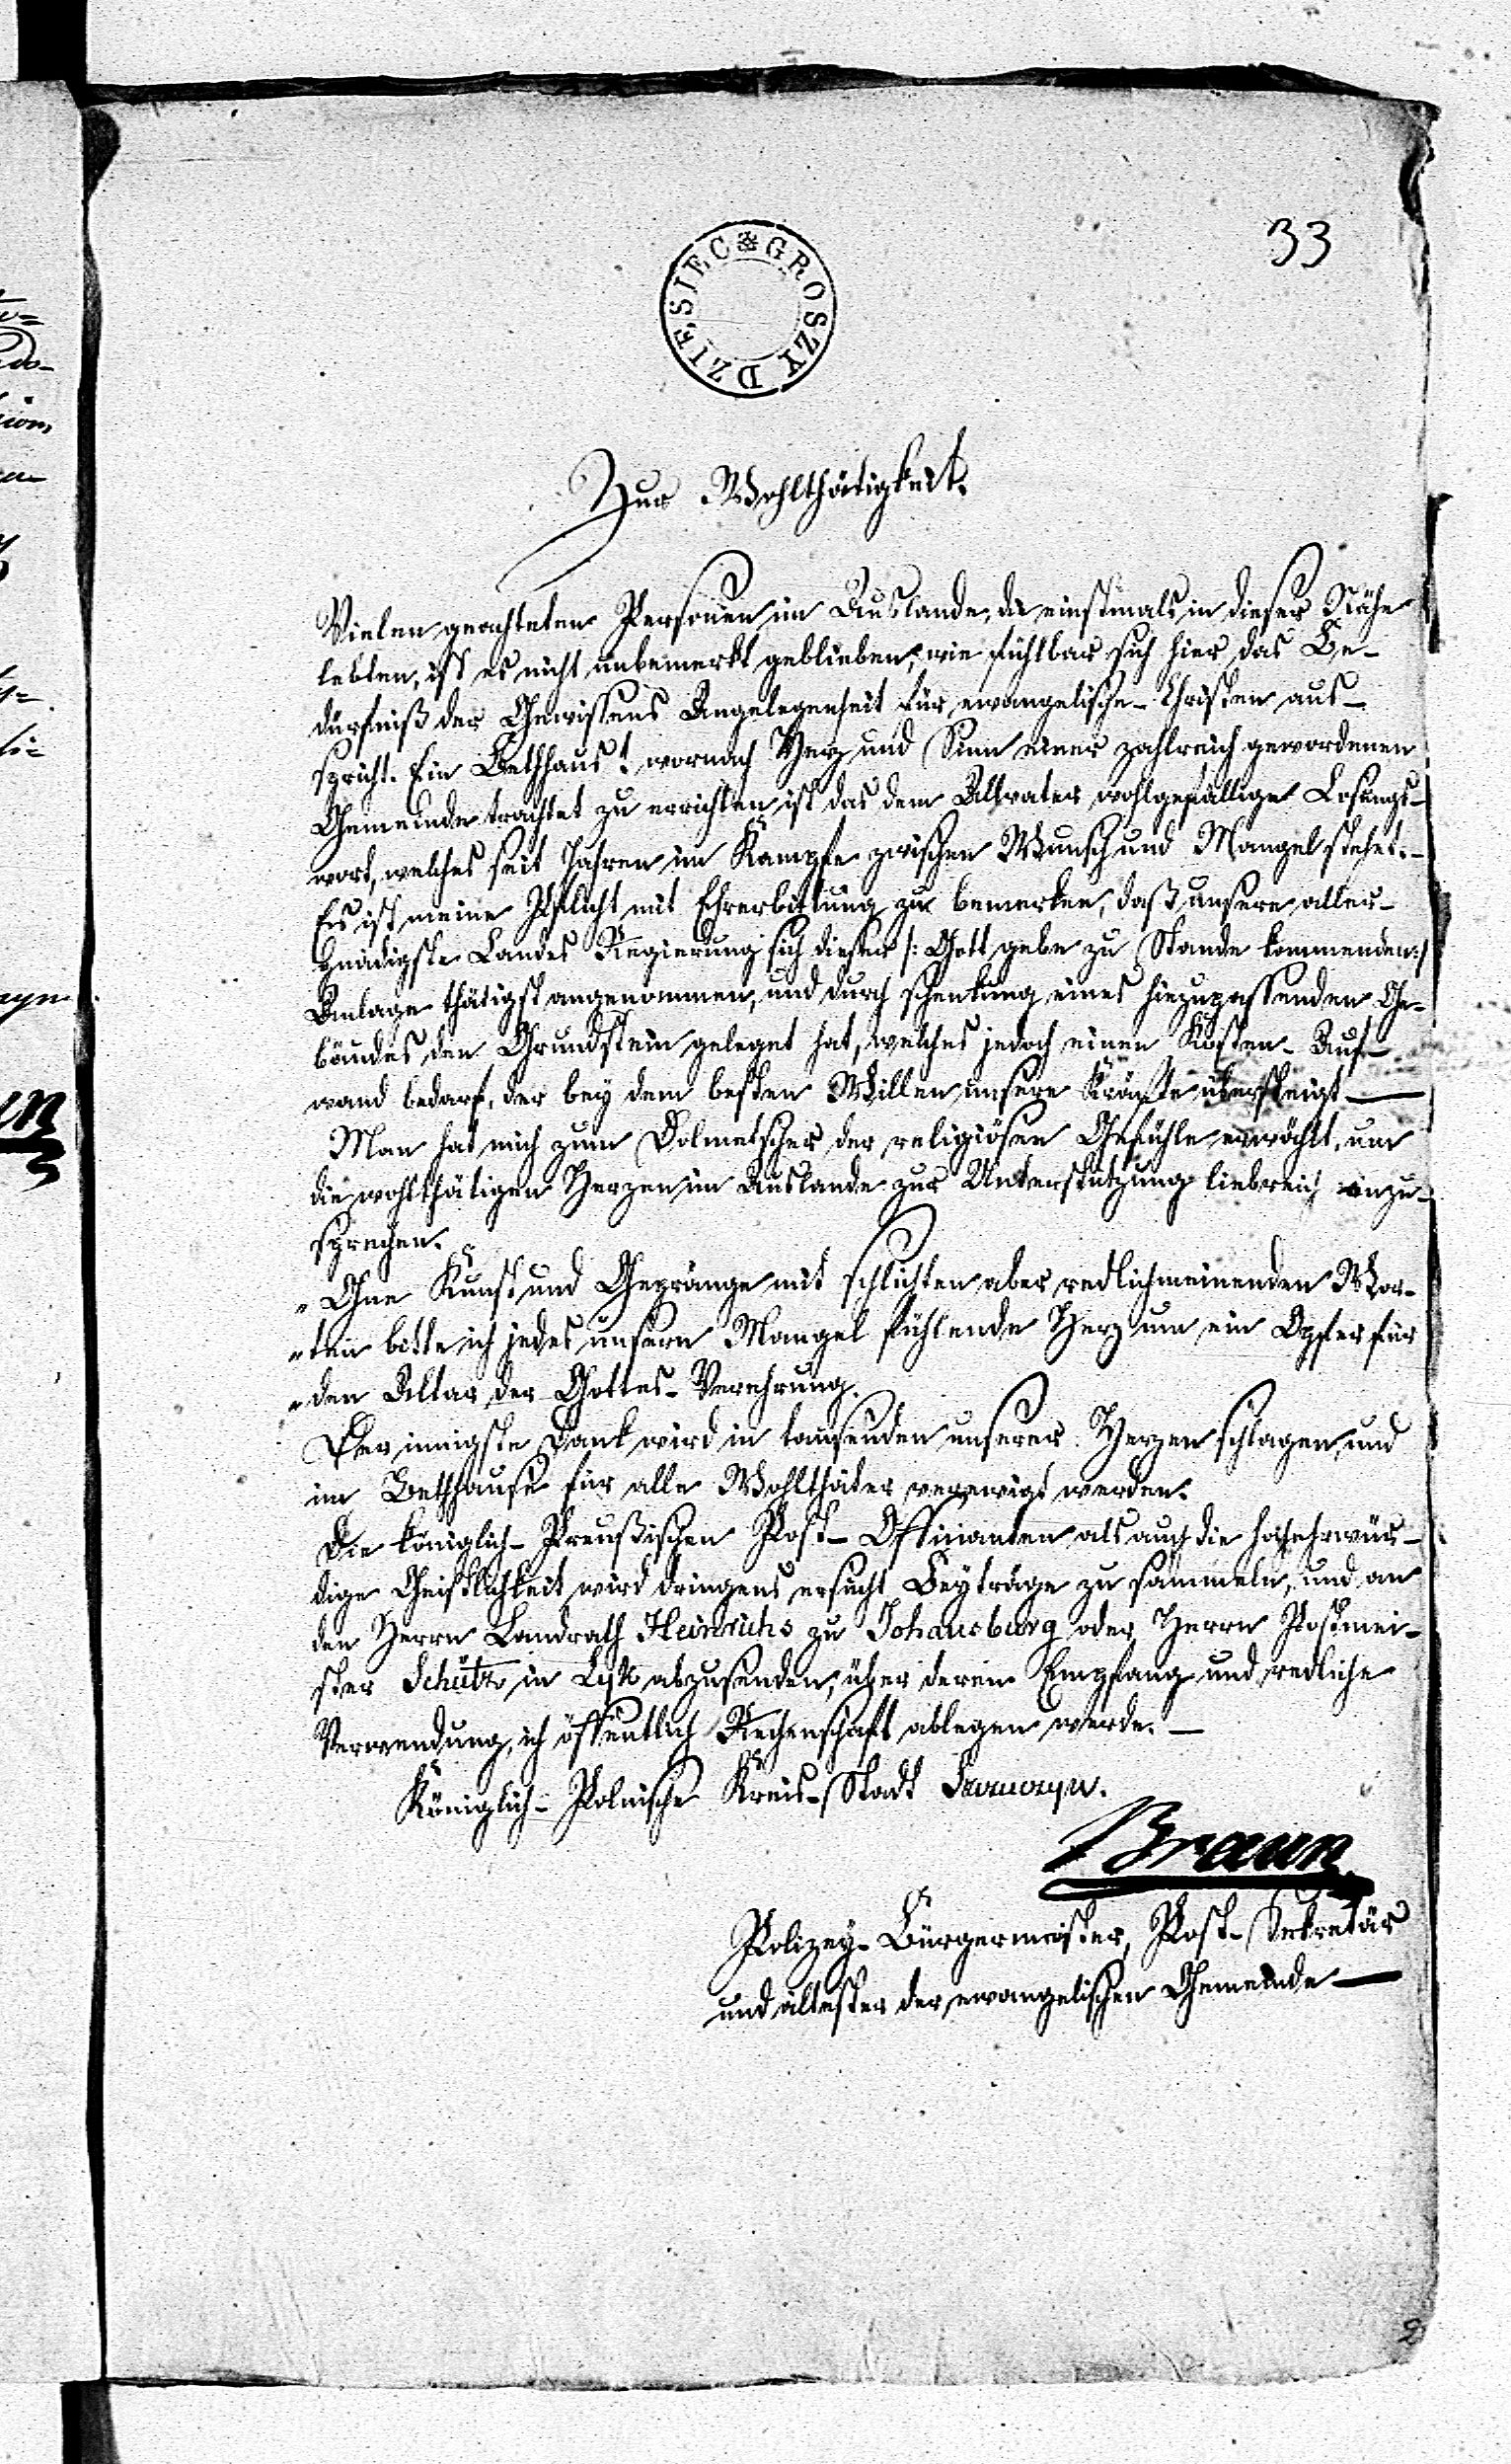 33
GROSZY DZIESIEC
Zur Wohlthätigkeit.
Vielen geachteten Personen im Auslande, die einstmals in dieser Nähe
lebten, ist es nicht unbemerkt geblieben, wie fühlbar sich hier das Be-
dürfniß der Gewissens Angelegenheit für ewangelische-Christen aus-
spricht. Ein Bethhaus! wornach Herz und Sinn einer zahlreich gewordenen
Gemeinde trachtet zu errichten ist das dem Allvater wohlgefällige Losungs-
wort, welches seit Jahren im Kampfe zwischen Wunsch und Mangel stehet.-
Es ist meine Pflicht mit Ehrerbittung zu bemerken, daß unsere aller-
gnädigste Landes Regierung sich dieser /: Gott gebe zu Stande kommenden:/
Anlage thätigst angenommen, und durch schenkung eines hiezupassenden Ge-
bäudes den Grundstein geleget hat, welches jedoch einen Kosten-Auf-
wand bedarf, der bey dem besten Willen unsere Kräfte übersteigt —
Man hat mich zum Dolmetscher der religiösen Gefühle erwählt, um
die wohlthätigen Herzen im Auslande zur Unterstützung liebreich anzu-
sprechen.
„Ohne Kunst und Gepränge mit schlichten aber redlichmeinenden Wor-
„ten bitte ich jedes unsern Mangel fühlende Herz um ein Opfer für
„den Altar der Gottes-Verehrung.
Der innigste Dank wird in tausenden unserer Herzen schlagen, und
im Bethhause für alle Wohlthäter verewigt werden.
Die königlich-Preußischen Post-Offizianten als auch die hochehrwür-
dige Geistlichkeit wird dringens ersucht Beyträge zu sammeln, und an
den Herrn Landrath Heinrichs zu Johansburg oder Herrn Postmei-
ster Schütz in Lyk abzusenden, über deren Empfang und redliche
Verwendung, ich öffentlich Rechenschaft ablegen werde. —
Königlich-Polnische Kreis-Stadt
Braun
Polizey-Bürgermeister, Post-Sekretär
und ältester der ewangelischen Gemeinde —